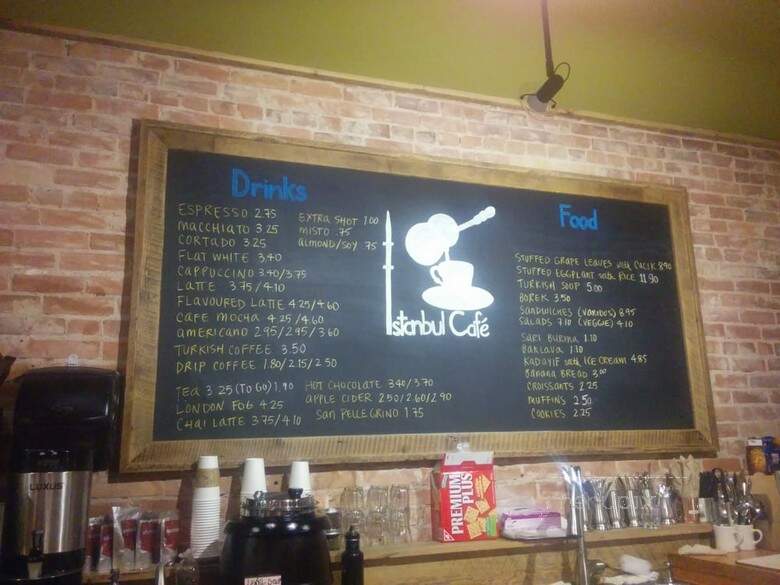 Drinks
ESPRESSO 2.75
MACCHIATO 3.25
CORTADO 3.25
FLAT WHITE 3.40
CAPPUCCINO 3.40/3.75
LATTE 3.75/4.10
FLAVOURED LATTE 4.25/4.60
CAFE MOCHA 4.25/4.60
AMERICANO 2.95/2.95/3.60
TURKISH COFFEE 3.50
DRIP COFFEE 1.80/2.15/2.50
TEA 3.25 (TO GO) 1.90
LONDON FOG 4.25
CHAI LATTE 3.75/4.10
EXTRA SHOT 1.00
MISTO .75
ALMOND/SOY .75
HOT CHOCOLATE 3.40/3.70
APPLE CIDER 2.50/2.60/2.90
SAN PELLEGRINO 1.75
Istanbul Café
Food
STUFFED GRAPE LEAVES with CACIK 8.90
STUFFED EGGPLANT with RICE 11.90
TURKISH SOUP 5.00
BOREK 3.50
SANDWICHES (VARIOUS) 8.95
SALADS 7.10 (VEGGIE) 4.10
SARI BURMA 1.10
BAKLAVA 1.10
KADAYIF with ICE CREAM 4.85
BANANA BREAD 3.00
CROISSANTS 2.25
MUFFINS 2.50
COOKIES 2.25
LUXUS
PREMIUM PLUS